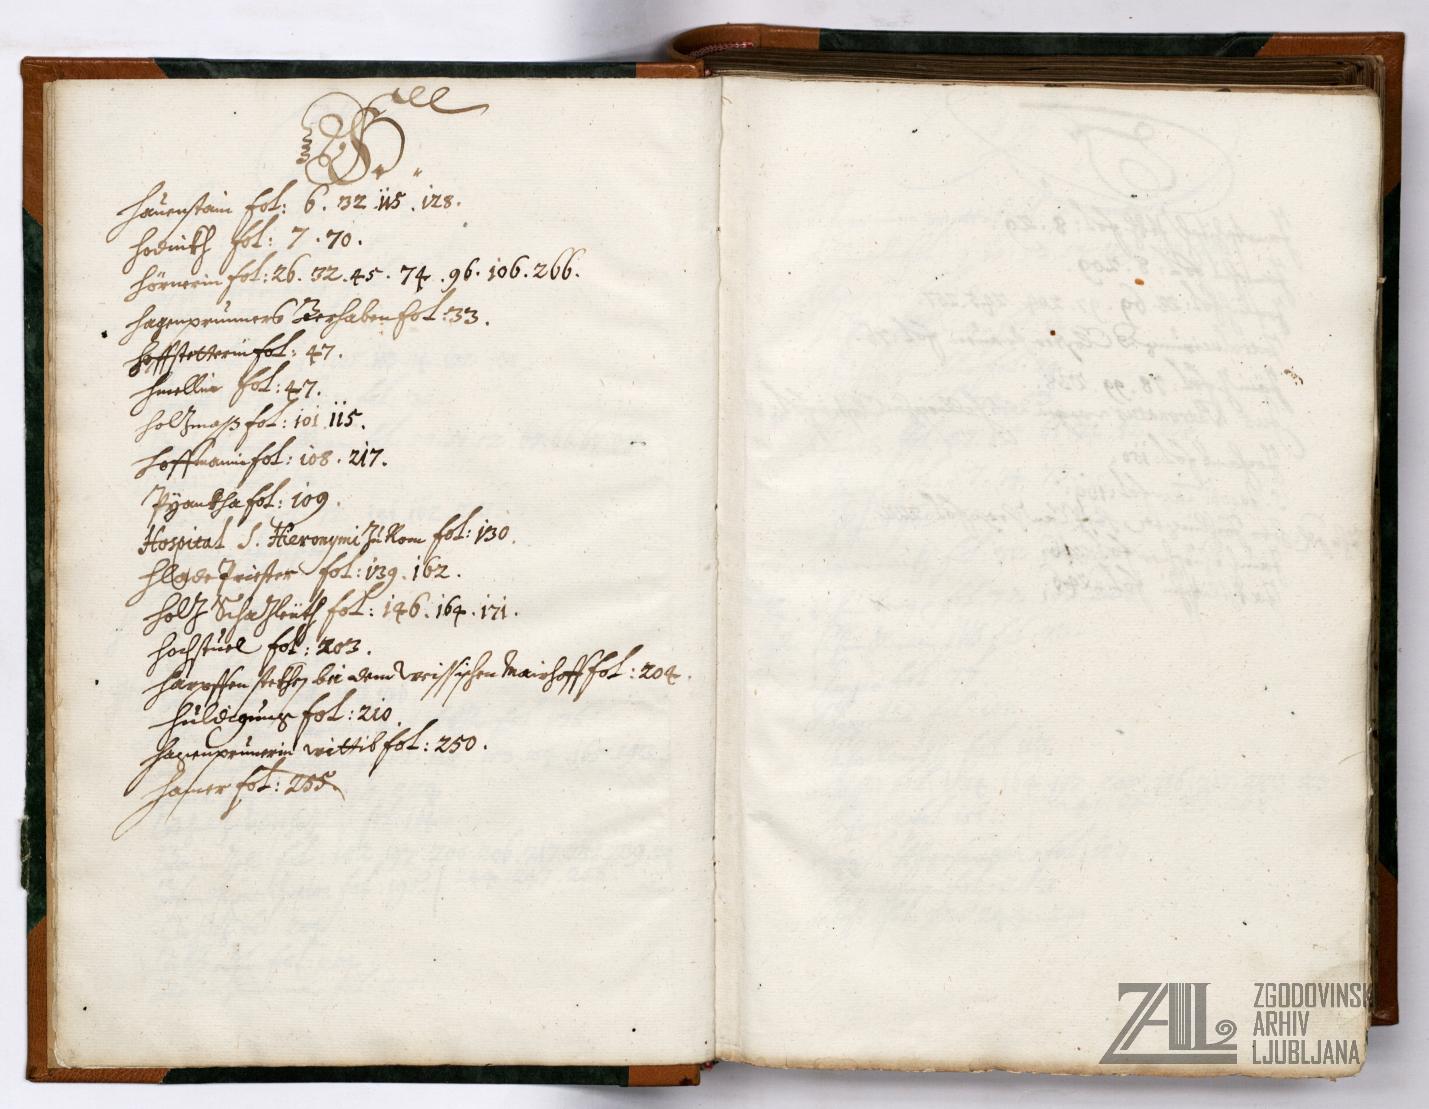 H.
Hauenstain fol: 6. 32. 115. 128.
Hodnikh fol: 7. 70.
Hörnerin fol: 26. 32. 45. 74. 96. 106. 266.
Hagenprunners Gerhaben fol: 33.
Hoffstetterin fol: 47.
fol: 47.
Holzmaß fol: 101. 115.
Hoffmanin fol: 108. 217.
fol: 109.
Hospital S. Hieronymi zu Rom fol: 130.
Priester fol: 139. 162.
Holz fol: 146. 164. 171.
Hochstuel fol: 203.
Harpffen bei dem Mairhoff fol: 204.
Huldigung fol: 210.
Hagenprunerin wittib fol: 250.
Hamer fol: 255.
ZAL ZGODOVINSKI
ARHIV
LJUBLJANA